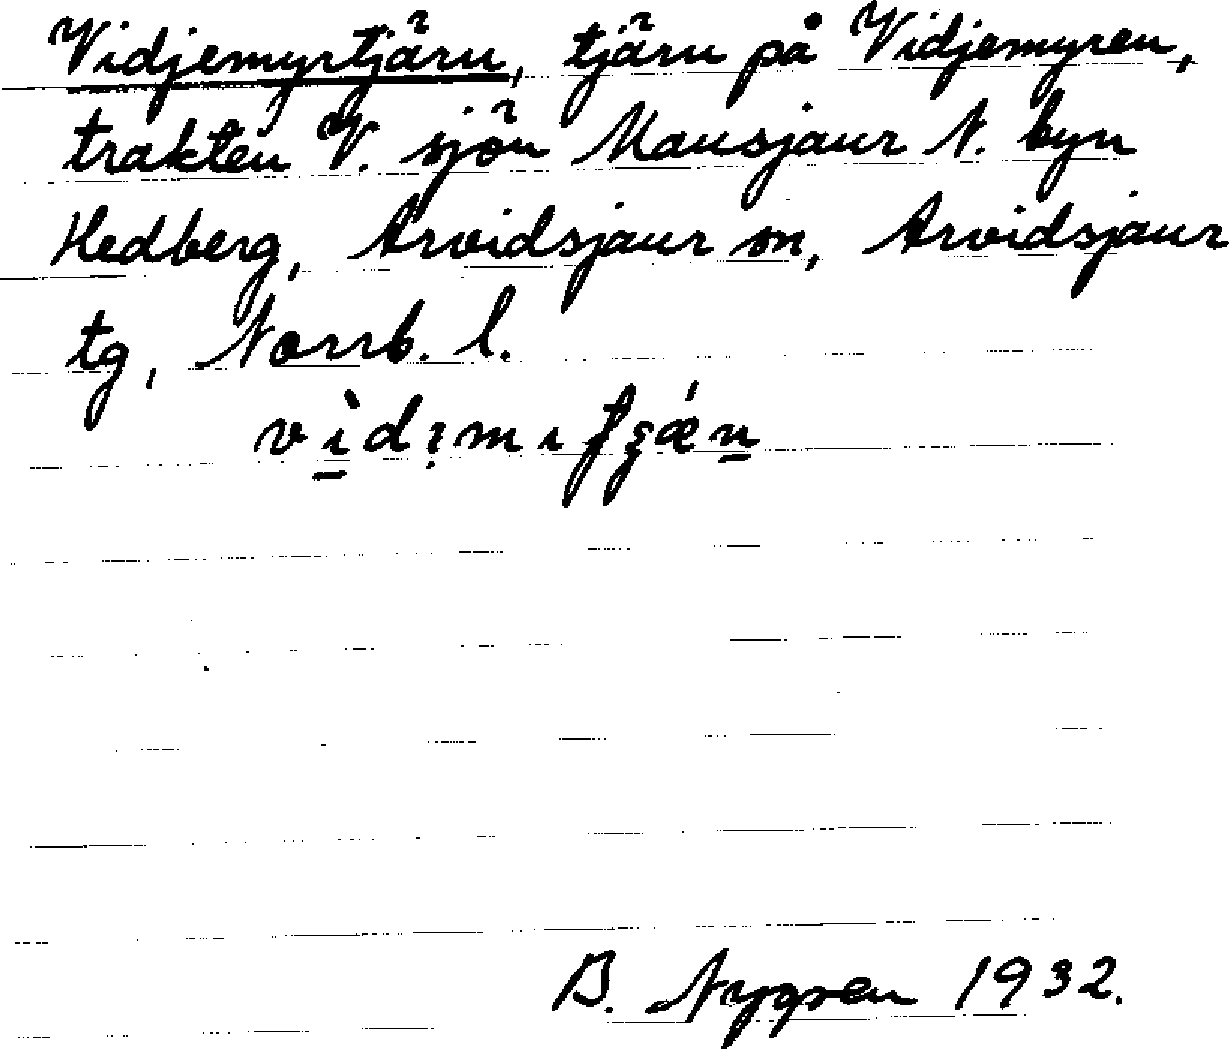 Vidjemyrtjärn, tjärn på Vidjemyren,
trakten V. sjön Mausjaur N. byn
Hedberg, Arvidsjaur sn, Arvidsjaur
tg, Norrb. l.
B. Nygren 1932.